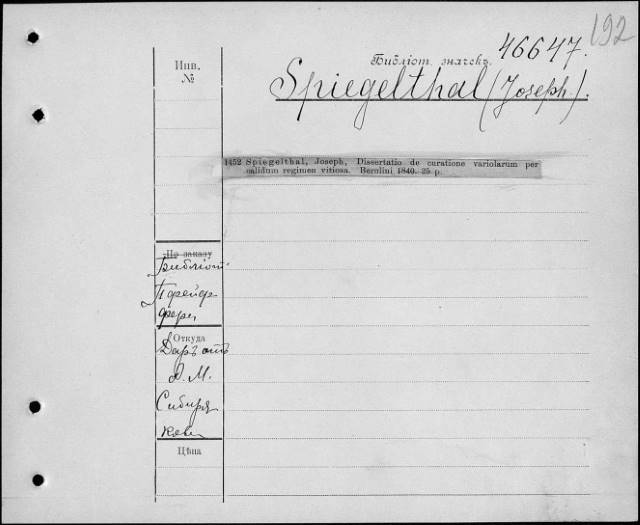 192
46647.
Инв.
№
Библіот. значекъ
Spiegelthal (Joseph).
1452 Spiegelthal, Joseph, Dissertatio de curatione variolarum per
calidum regimen vitiosa. Berolini 1840. 25 p.
По заказу
Библіот.
Пфейф-
фера
Откуда
Даръ отъ
А. М.
Сибиря
кова
Цѣна